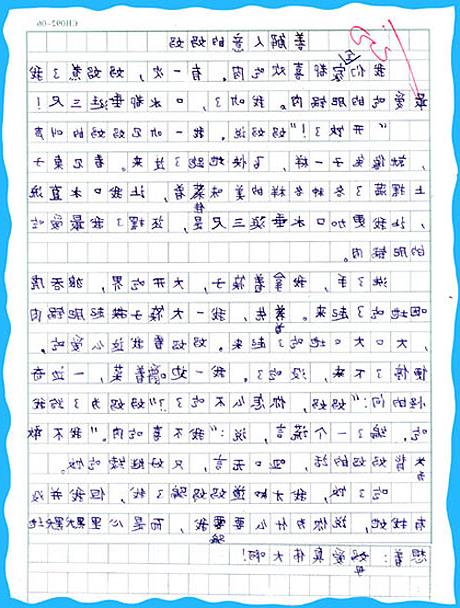 CH092-06
善解人意的妈妈
我们家都喜欢吃肉。有一次，妈妈煮了我
最爱吃的肥锅肉。我听，口水都垂涎三尺！
"开饭了！"妈妈说。我一听见妈妈的叫声
，就像兔子一样，飞快地跑了过来。看见桌子
上摆满了各种各样的美味菜肴，让我口水直流
，让我更加口水垂涎三尺是，还摆了我最爱吃
的肥锅肉。
洗了手，我拿着筷子，大开吃界，狼吞虎
咽地吃了起来。首先，我一大筷子肥锅肉
，大口大口地吃了起来。妈妈看我这么爱吃，
便停了下来，没吃了。我一边嚼着菜，一边奇
怪的问："妈妈，你怎么不吃了？"妈妈为了给我
吃，编了一个谎言，说："我不喜吃肉。"我不敢
违背妈妈的话，哑口无言，只好继续吃饭。
吃了饭，我才知道妈妈骗了我，但我并没
有找她，说你为什么要骗我，而是心里默默地
想着：母爱真伟大啊！